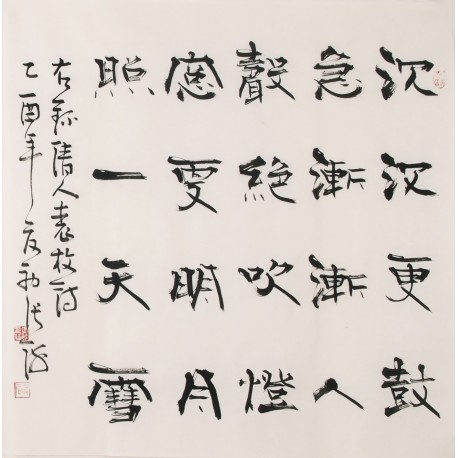 沉沉更鼓
急漸漸人
聲絕吹燈
窗更明月
照一天雪
右錄清人袁枚詩
乙酉年夏初